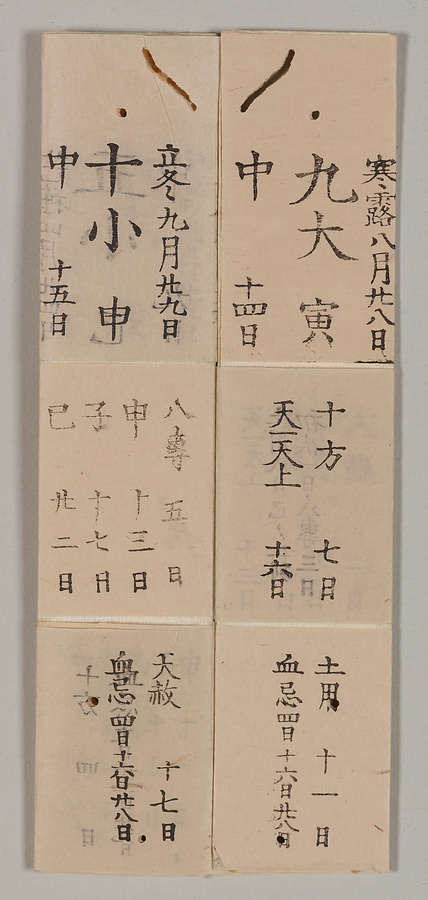 寒露八月廿八日
九大 寅
中 十四日
十方 七日
天一天上 十六日
土用 十一日
血忌四日十六日廿八日
立冬九月廿九日
十小 申
中 十五日
八專 五日
申 十三日
子 十七日
巳 廿二日
天赦 十七日
血忌四日十六日廿八日